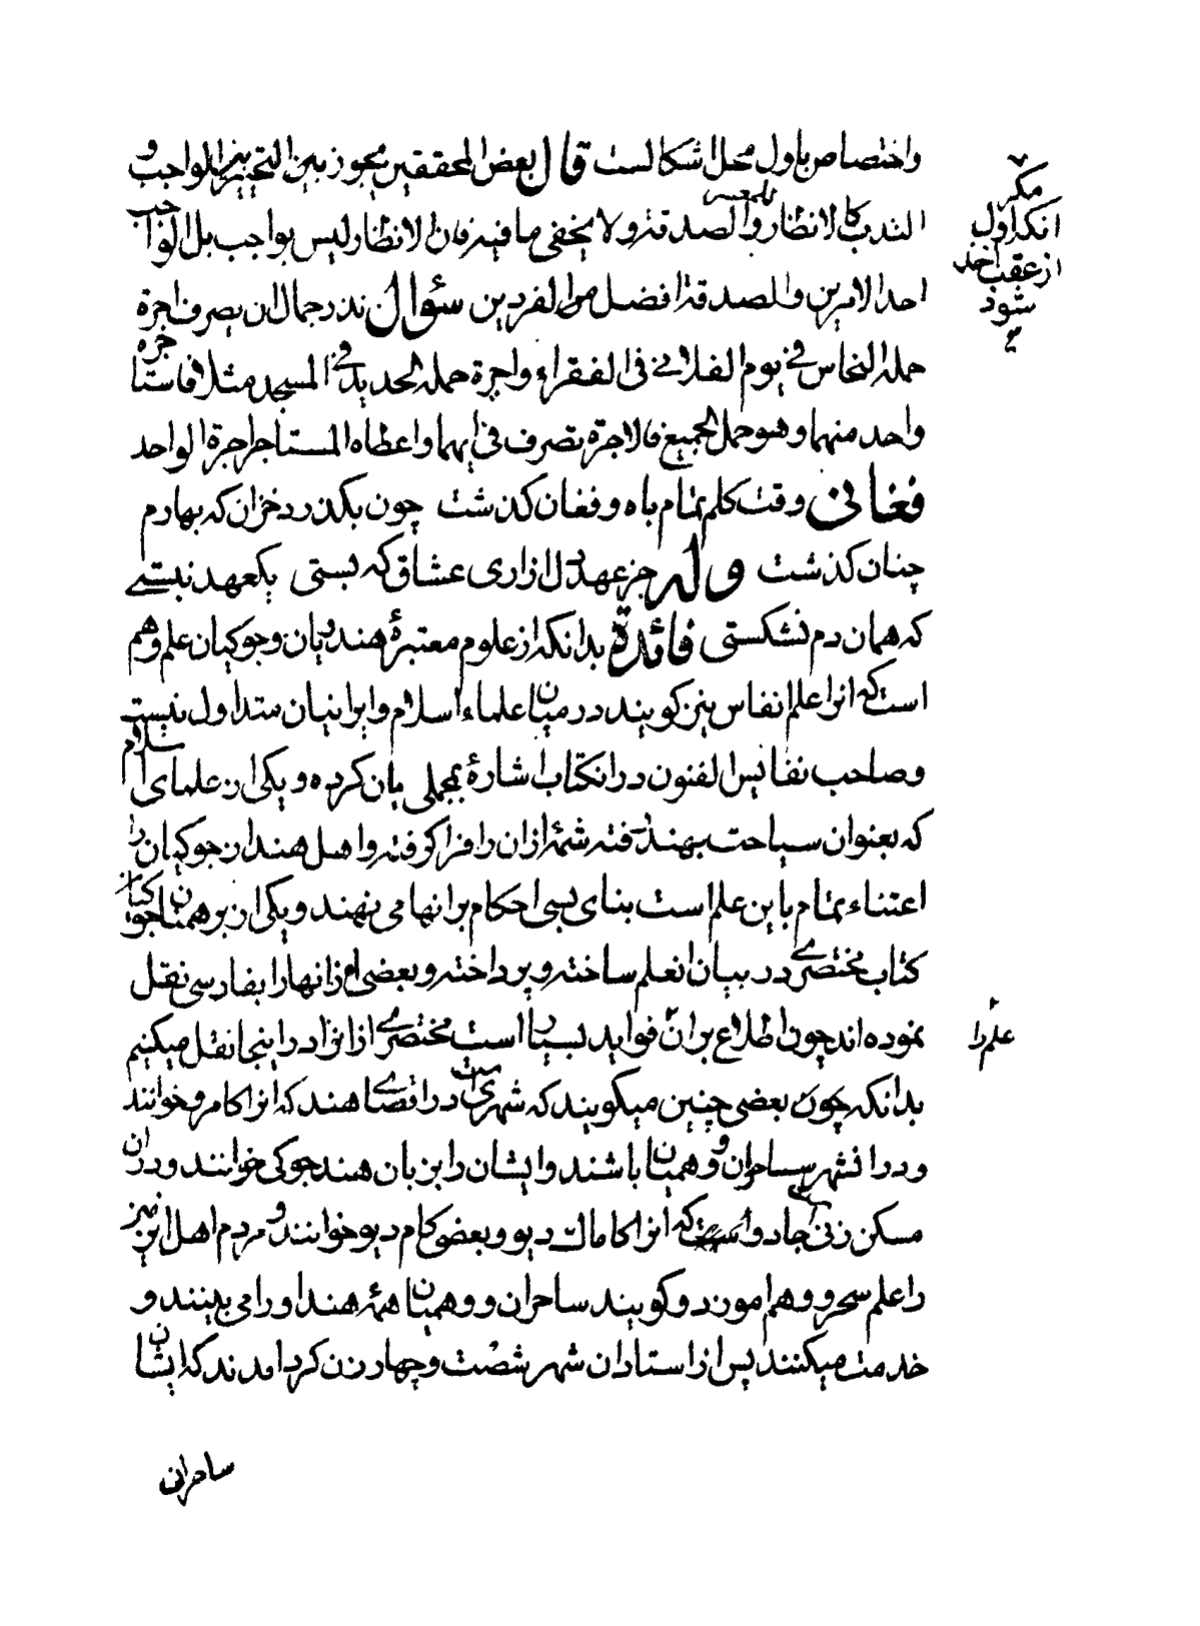 واختصاص باول محل اشکالست قال بعض المحققین یجوز بین التخییر الواجب و
الندب کالانظار والصدقة ولا یخفی ما فیه فان الانظار لیس بواجب بل الواجب
احد الامرین والصدقة افضل الفردین سؤال نذر جمال ان یصرف اجرة
حمله النحاس فی یوم الفلانی فی الفقراء واجرة حمله الحدید فی المسجد مثلا فاستاجره
واحد منهما وهو حمل الجمیع فالاجرة تصرف فی ایهما واعطاه المستاجر اجرة الواحد
فغانی وقت کلم تمام باه و فغان کذشت چون بکذرد خزان که بهارم
چنان کذشت وله جز عهد دل ازاری عشاق که بستی یکعهد نبستی
که همان دم نشکستی فائدة بدانکه از علوم معتبرهٔ هندیان وجوکیان علم وهم
است که انرا علم انفاس نیز کویند در میان علماء اسلام وایرانیان متداول نیست
وصاحب نفایس الفنون در انکتاب اشارهٔ بمجملی بان کرده ویکی از علمای اسلام
که بعنوان سیاحت بهند رفته شمهٔ ازان را فرا کرفته واهل هند از جوکیان را
اعتناء تمام باین علم است بنای بسی احکام برانها می نهند ویکی از برهمنان جوکیان
کتاب مختصری در بیان انعلم ساخته وپرداخته وبعضی از انها را بفارسی نقل
نموده اند چون اطلاع بران فواید بسیار است مختصری ازانرا در اینجا نقل میکنیم
بدانکه چون بعضی چنین میکویند که شهری است در اقصای هند که انرا کامرو خوانند
ودر انشهر ساحران و وهمیان باشند وایشان را بزبان هند جوکی خوانند ودران
مسکن زنی جادو است که انرا کاماک دیو وبعضی کام دیو خوانند و مردم اهل این
را علم سحر و وهم اموزد وکویند ساحران و وهمیان همهٔ هند اورا می بینند و
خدمت میکنند پس از استادان شهر شصت وچهار زن کرد امدند که ایشان
ساحران
مکر
انکه اول
از عقب اخذ
شود
علم را